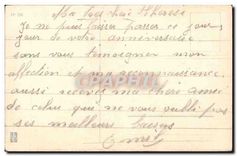 Ma bien chère Thérèse
Je ne puis laisser passer ce jour
jour de votre anniversaire
sans vous témoigner mon
affection et ma reconnaissance
aussi recevez ma chère amie
de celui qui ne vous oublie pas
ses meilleurs baisers